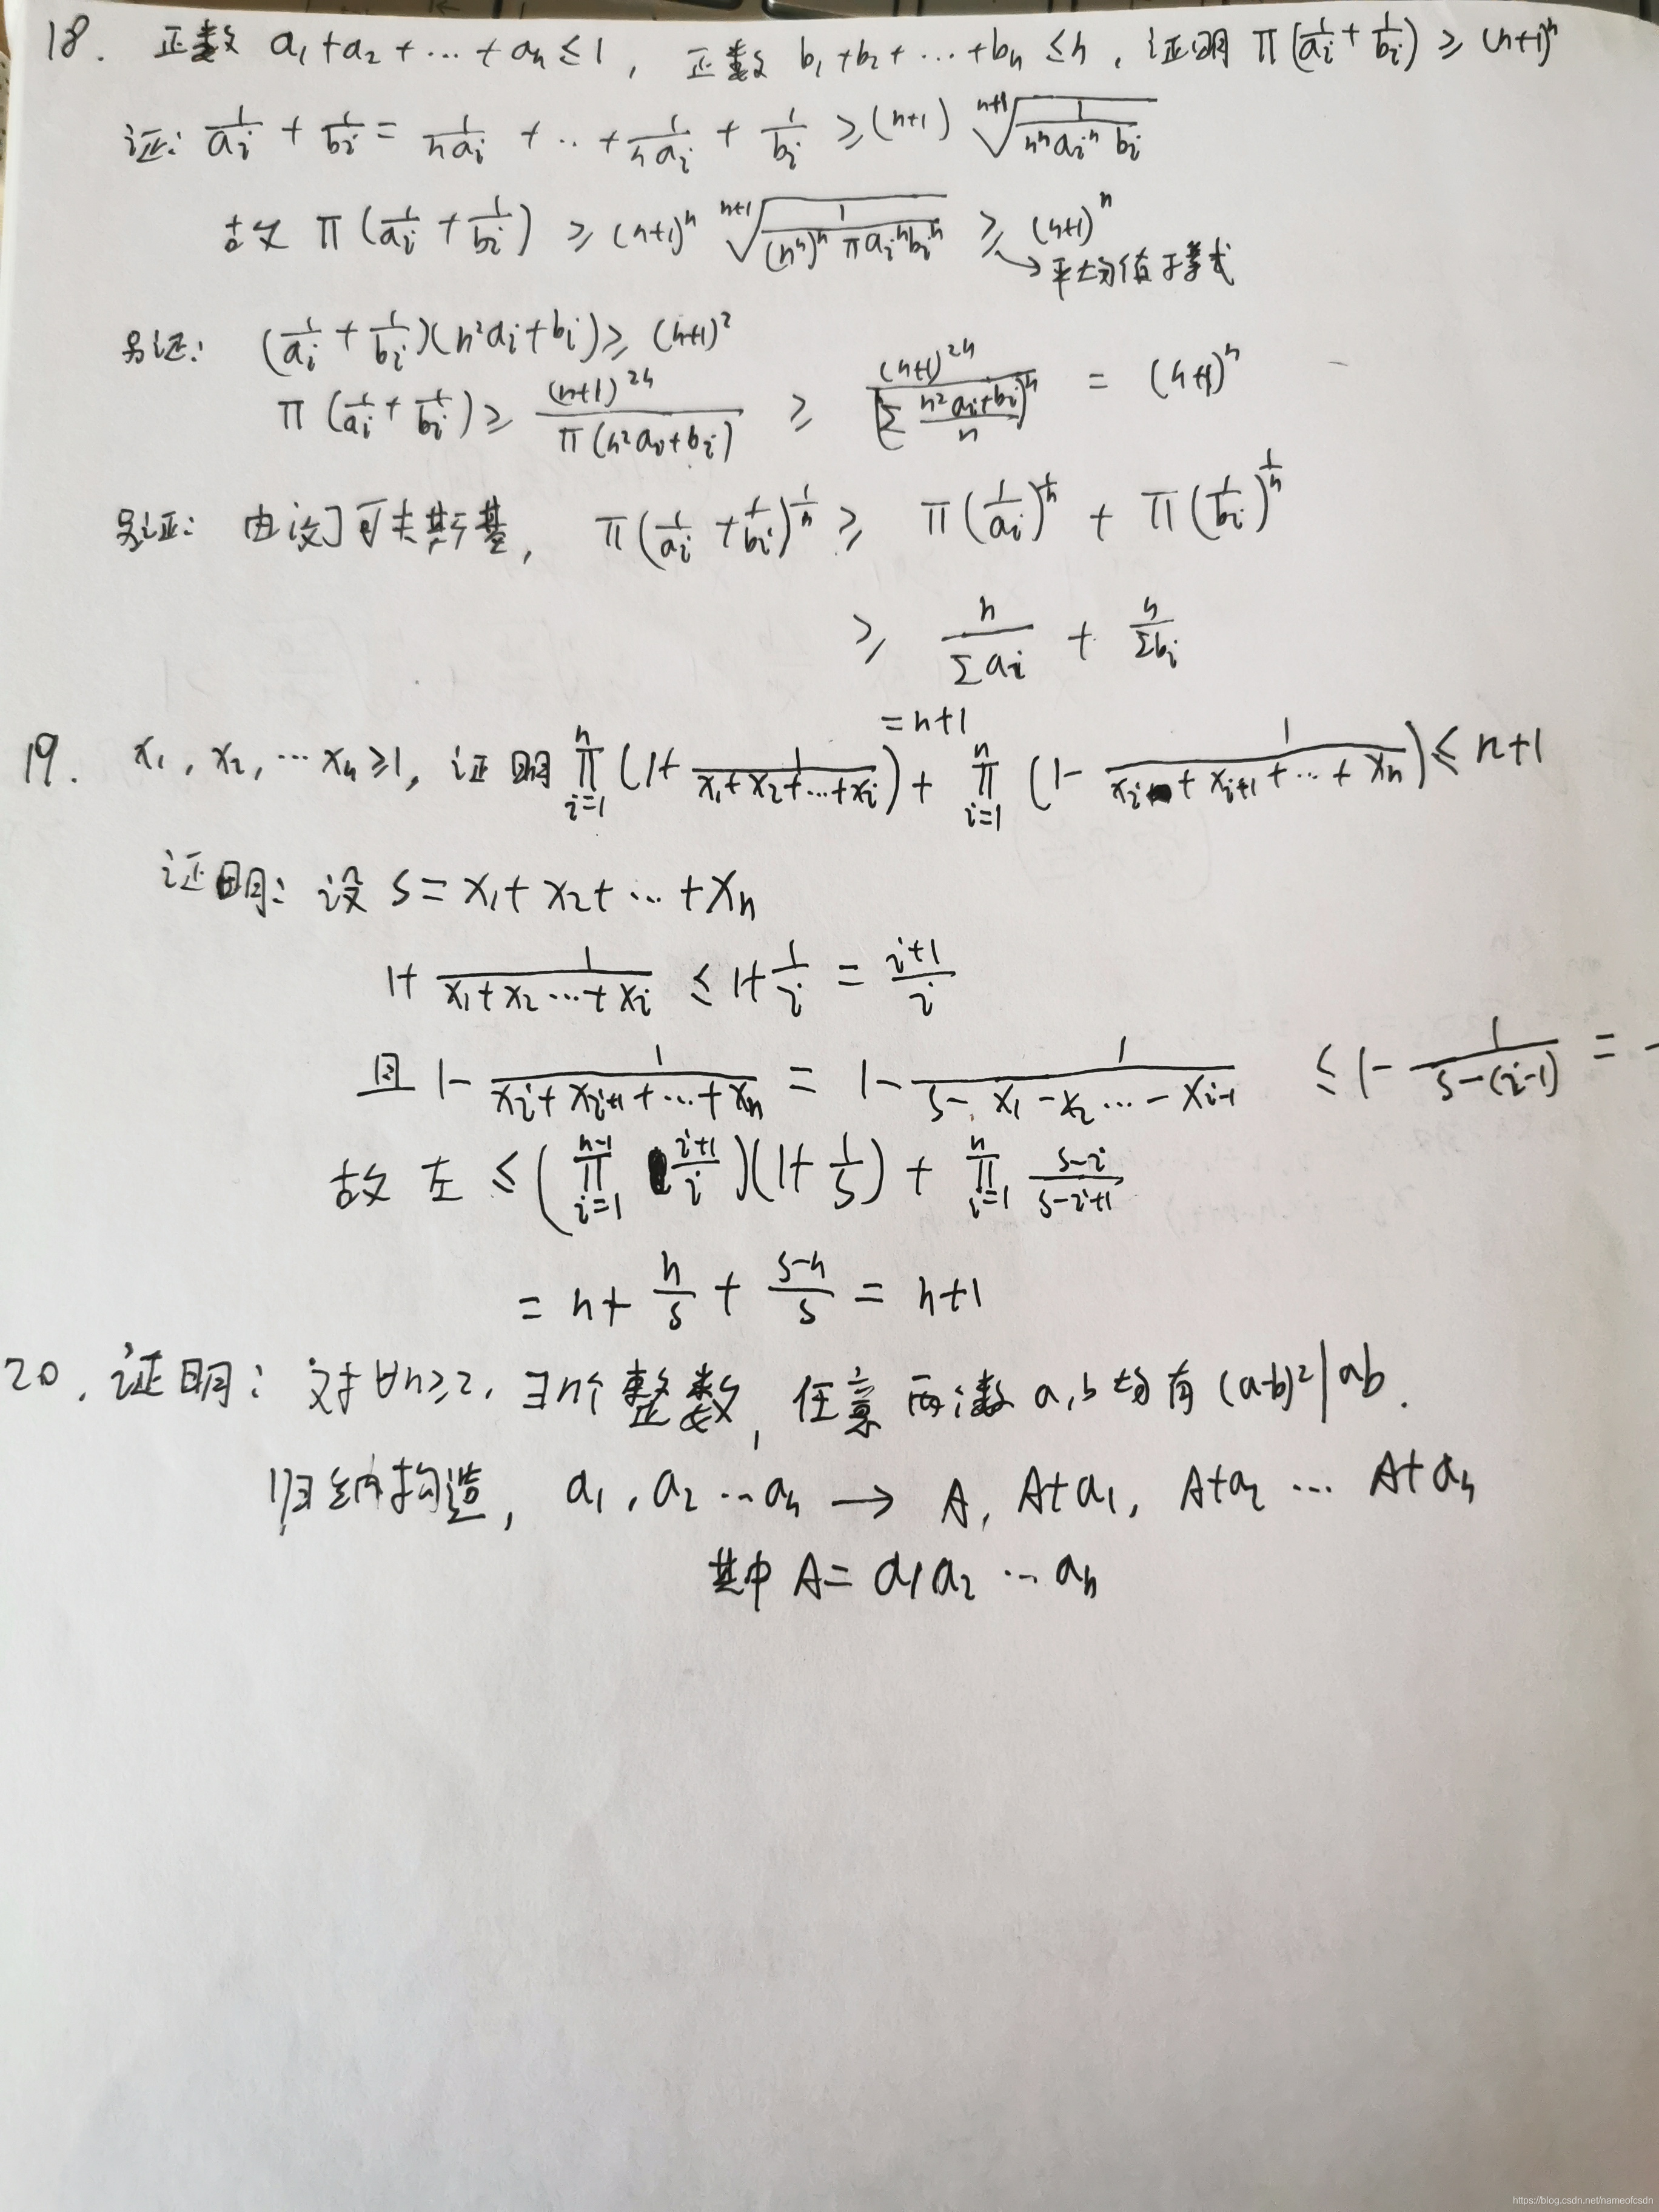 18. 正数 a₁+a₂+…+aₙ≤1, 正数 b₁+b₂+…+bₙ≤n, 证明 π(1/aᵢ+1/bᵢ)≥(n+1)ⁿ
证: 1/aᵢ + 1/bᵢ = 1/(naᵢ) + … + 1/(naᵢ) + 1/bᵢ ≥ (n+1) ⁿ⁺¹√(1/(nⁿaᵢⁿbᵢ))
故 π(1/aᵢ+1/bᵢ) ≥ (n+1)ⁿ ⁿ⁺¹√(1/((nⁿ)ⁿ πaᵢⁿbᵢⁿ)) ≥ (n+1)ⁿ
→平均值不等式
另证: (1/aᵢ+1/bᵢ)(n²aᵢ+bᵢ)≥(n+1)²
π(1/aᵢ+1/bᵢ)≥ (n+1)²ⁿ/π(n²aᵢ+bᵢ) ≥ (n+1)²ⁿ/[Σ(n²aᵢ+bᵢ)/n]ⁿ = (n+1)ⁿ
另证: 由 π(1/aᵢ+1/bᵢ)^(1/n) ≥ π(1/aᵢ)^(1/n) + π(1/bᵢ)^(1/n)
≥ n/Σaᵢ + n/Σbᵢ
=n+1
19. x₁, x₂, …xₙ≥1, 证明 ∏ᵢ₌₁ⁿ(1+1/(x₁+x₂+…+xᵢ)) + ∏ᵢ₌₁ⁿ(1-1/(xᵢ+xᵢ₊₁+…+xₙ))≤n+1
证明: 设 s=x₁+x₂+…+xₙ
1+1/(x₁+x₂…+xᵢ) ≤ 1+1/i = (i+1)/i
且 1-1/(xᵢ+xᵢ₊₁+…+xₙ) = 1-1/(s-x₁-x₂…-xᵢ₋₁) ≤1-1/(s-(i-1)) =
故 左 ≤ (∏ᵢ₌₁ⁿ⁻¹ (i+1)/i)(1+1/s) + ∏ᵢ₌₁ⁿ (s-i)/(s-i+1)
= n+n/s+(s-n)/s = n+1
20. 证明: 对∀n≥2, ∃n个整数, 任意两数 a,b 均有 (a-b)²|ab.
归纳构造, a₁, a₂…aₙ → A, A+a₁, A+a₂…A+aₙ
其中 A=a₁a₂…aₙ
https://blog.csdn.net/nameofcsdn